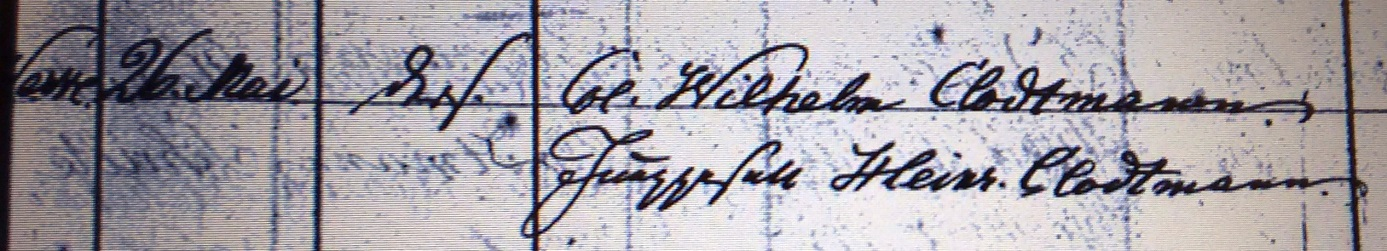 26. Mai ders. Col. Wilhelm Clodtmann,
Junggesell Heinr. Clodtmann.